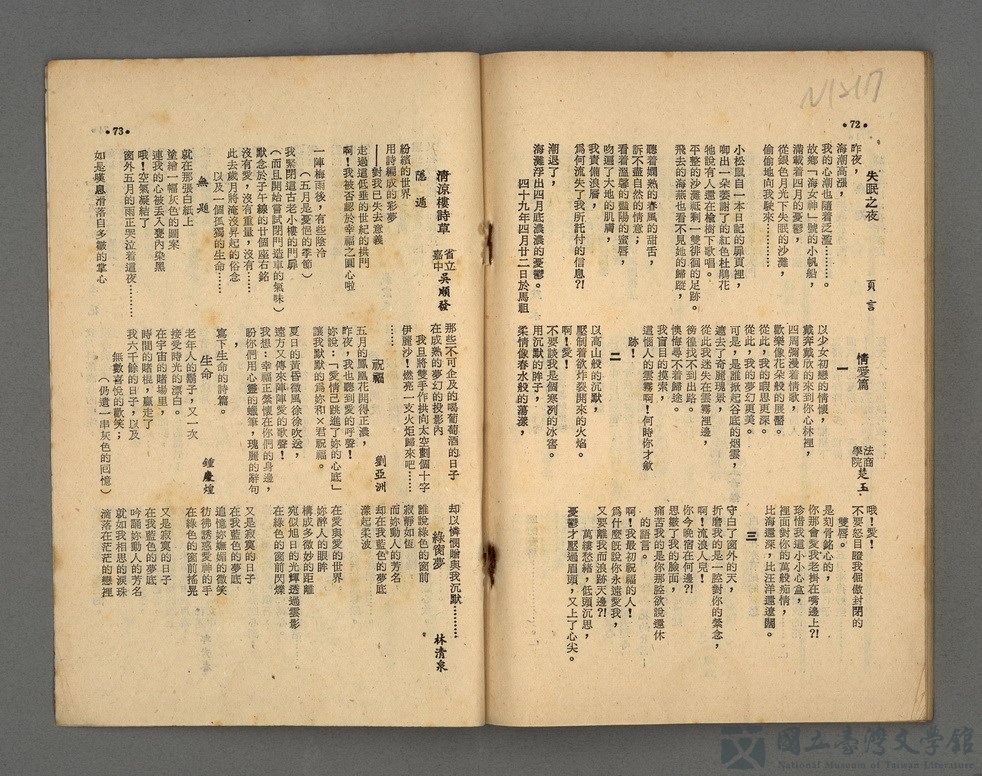 •72•
失眠之夜
頁言
昨夜，
海潮高漲，
我的心潮也隨着泛濫………。
故鄉「海女神」號的小帆船，
滿載着四月的憂鬱，
從銀色月光下的失眠的沙灘，
偷偷地向我駛來………
小松鼠自一本日記的扉頁裡，
啣出一朶萎謝了的紅色杜鵑花
牠說有人還在榆樹下歌唱。
平整的沙灘祇剩一雙徘徊的足跡。
飛去的海燕也看不見她的歸蹤，
聽着嫺熟的春風的甜舌，
訴不盡自然的情意；
看着溫馨的豔陽的蜜唇，
吻遍了大地的肌膚，
我責備浪層，
爲何流失了我所託付的信息?!
潮退了，
海灘浮出四月底濃濃的憂鬱。
四十九年四月廿二日於馬祖
情愛篇
法商學院 楚玉
一
以少女初戀的情懷，
戴奔戴欣的來到你心林裡，
四周彌漫着情歌，
歡樂像花朵般的展靨。
從此，我的暇思更深。
從此，我的夢幻更美。
可是，是誰掀起谷底的烟雲，
遮去了奇麗瑰景，
從此我迷失在雲霧裡邊，
徬徨找不到出路。
懊悔尋不着歸途。
我盲目的摸索，
這惱人的雲霧啊！何時你才歛
跡！
二
以高山般的沉默，
壓制着欲炸裂開來的火焰。
啊！愛！
不要談我是個寒冽的冰窖。
用沉默的眸子，
柔情像春水般的蕩漾，
哦！愛！
不要怒目瞪我倔傲封閉的
雙唇。
是刻骨銘心的，
你那會愛我老掛在嘴邊上?!
珍惜我這小小心盒，
裡面對你的萬般痴情，
比海還深，比汪洋還遼闊。
三
守白了窗外的天，
折磨我的是一腔對你的縈念，
啊！流浪人兒！
你今晚宿在何邊?!
思皺了我的臉面，
痛苦我的是你那腔欲說還休
的語言。
啊！我最初祝福的人！
爲什麼旣說你永遠愛我，
又要離我而浪跡天邊?!
萬縷愁緖，低頭沉思，
憂鬱才壓過眉頭，又上了心尖。
•73•
清涼樓詩草
省立嘉中 吳順發
隱遁
紛繽的世界
用詩編成的彩夢
——對我已失去意義
走過這低垂的世紀的拱門
啊！我被否認於幸福之圓心啦
一陣梅雨後，有些陰冷
（五月是憂悒的季節）
我緊閉這古老小樓的門扉
（而且開始嘗試閉門造車的氣味）
默念於子午線的廿個座右銘
沒有愛，沒有重量，沒有……
此去歲月將淹沒昇起的俗念
以及一個孤獨的生命……
無題
就在那張白紙上
塗繪一幅灰色的圖案
連我的心被丢入甕內染黑
哦！空氣凝結了
窗外五月的雨正哭泣着這夜……
如是嘆息滑落自多皺的掌心
那些不可企及的喝葡萄酒的日子
在成熟的夢幻的投影內
我且將雙手作拱向太空劃個十字
伊麗沙！燃亮一支火炬歸來吧……
祝福
劉亞洲
五月的鳳凰花開得正濃，
昨夜，我也聽到愛的呼聲！
她說：「愛情已跳進了妳的心底」
讓我默默的爲妳和×君祝福。
夏日的黃昏微風徐徐吹送，
遠方又傳來陣陣愛的歌聲！
我想：幸福正縈懷在你們的身邊，
盼你們用心靈的蠟筆，瑰麗的辭句
，
寫下生命的詩篇。
生命
鍾慶煌
老年人的鬍子，又一次
接受時光的漂白。
在宇宙的賭場裡，
時間的賭棍，贏走了
我六千餘的日子，以及
無數喜悅的歡笑；
（仍遺一串灰色的回憶）
却以憐憫贈與我沉默………
綠窗夢
林清泉
誰說綠色的窗前
寂靜如恆
而妳動人的芳名
却在我藍色的夢底
漾起柔波
在愛與愛的世界
妳醉人的眼眸
構成多微妙的距離
宛似旭日的光輝透過雲影
在綠色的窗前閃爍
又是寂寞的日子
在我藍色的夢底
追憶妳嫵媚的微笑
彷彿誘惑愛神的手
在綠色的窗前搖晃
又是寂寞的日子
在我藍色的夢底
吟誦妳動人的芳名
就如我相思的淚珠
滴落在茫茫的戀裡
國立臺灣文學館
National Museum of Taiwan Literature